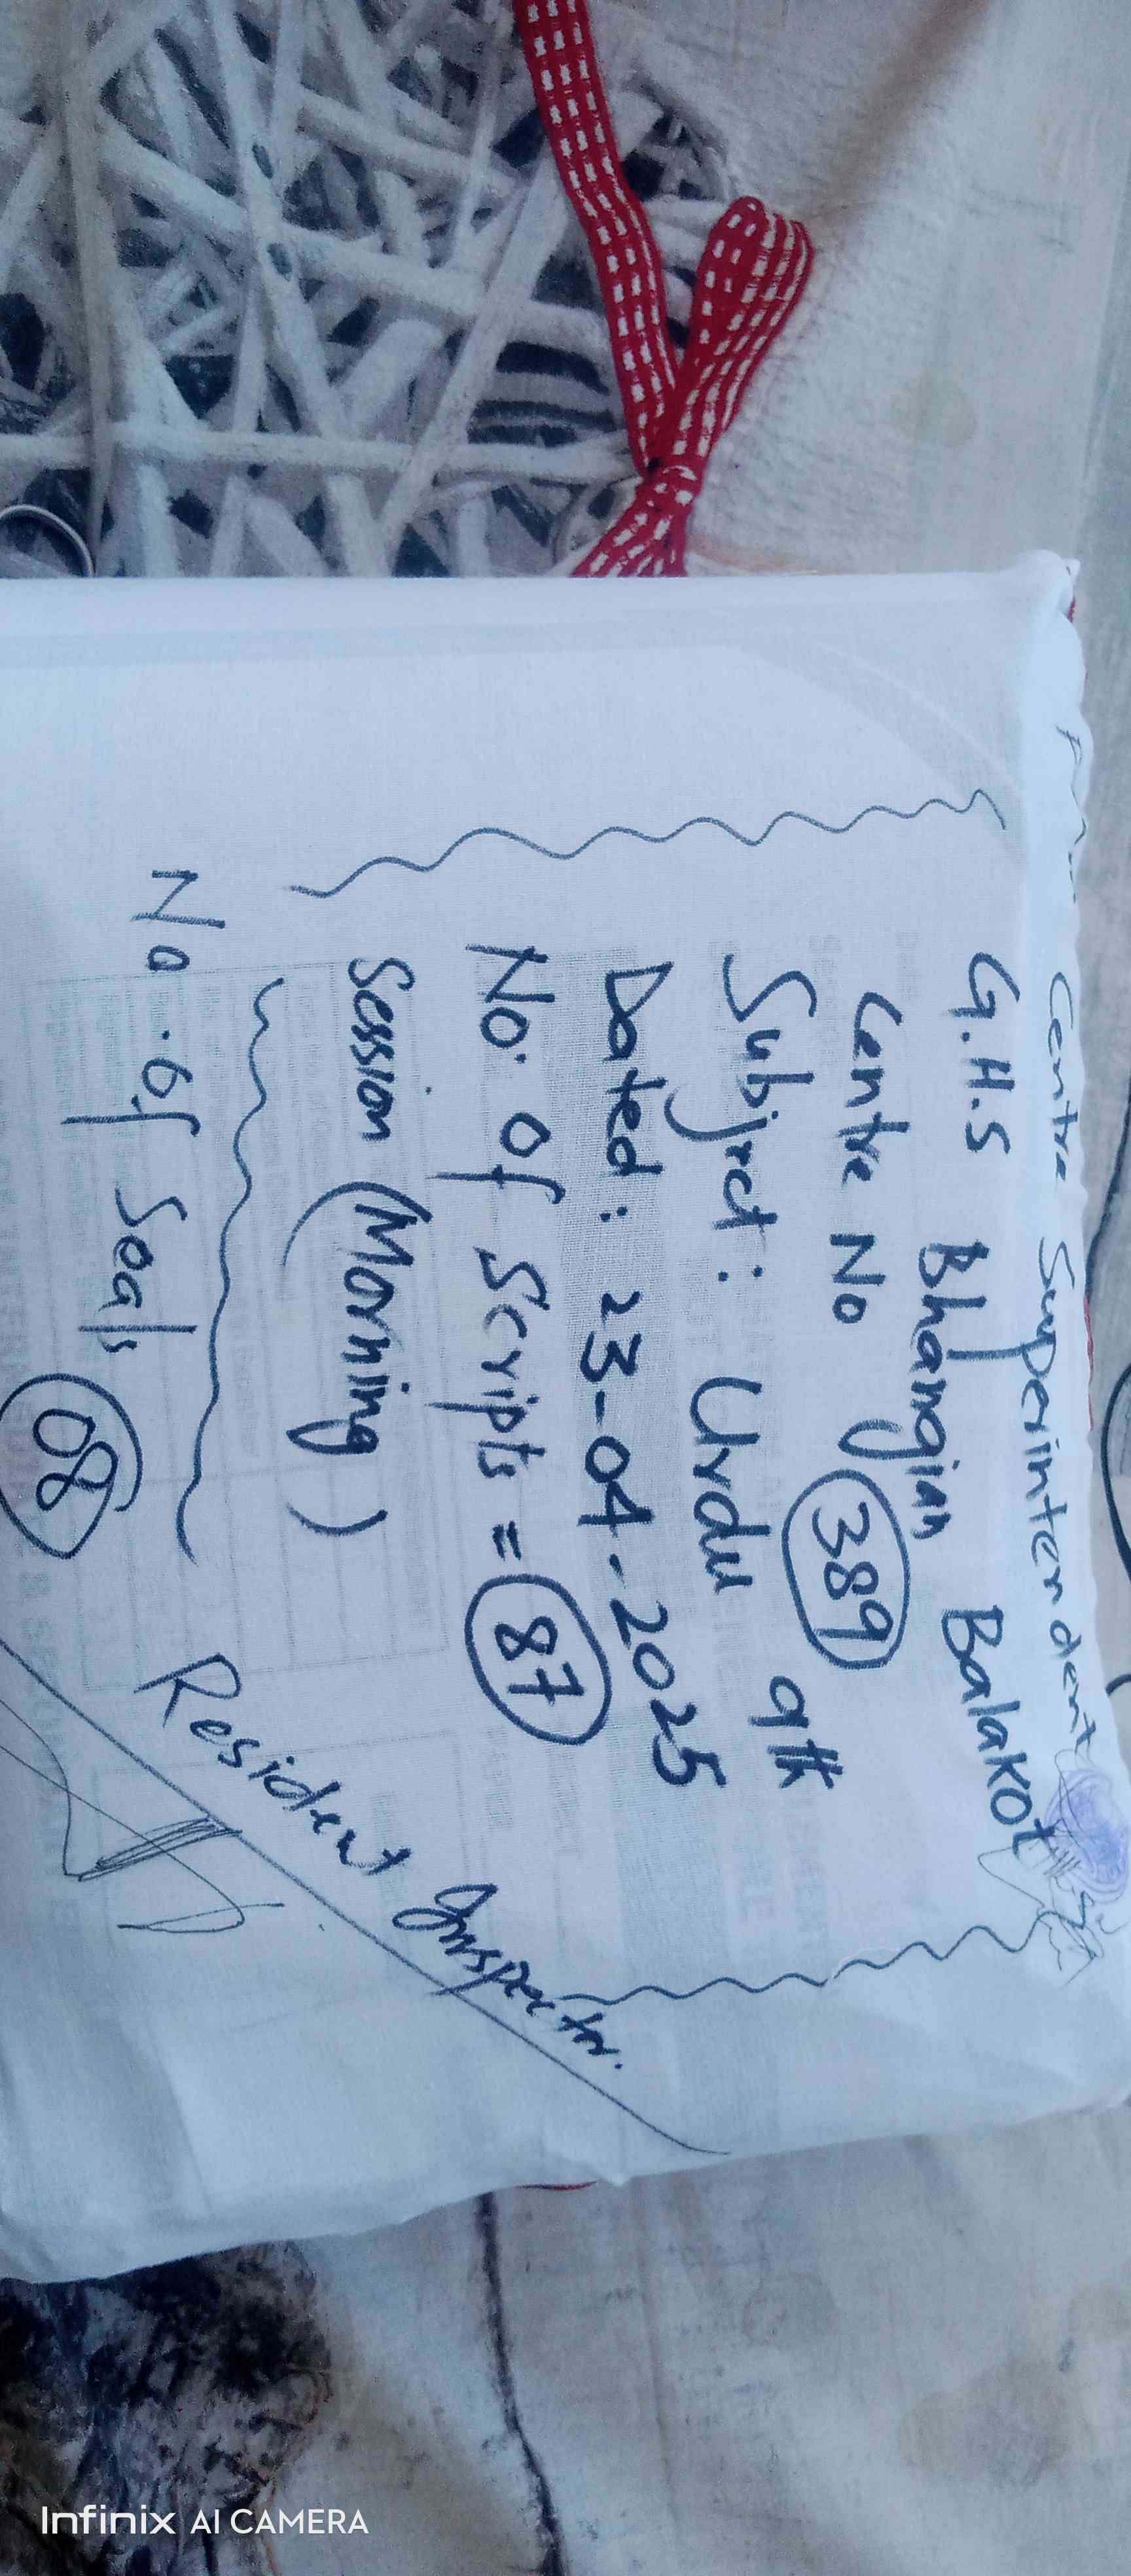 Centre Superintendent
G.H.S Bhangian Balakot
Centre No 389
Subject: Urdu 9th
Dated: 23-04-2025
No. of Scripts = 87
Session (Morning)
No. of Seals 08
Resident Inspector.
Infinix AI CAMERA